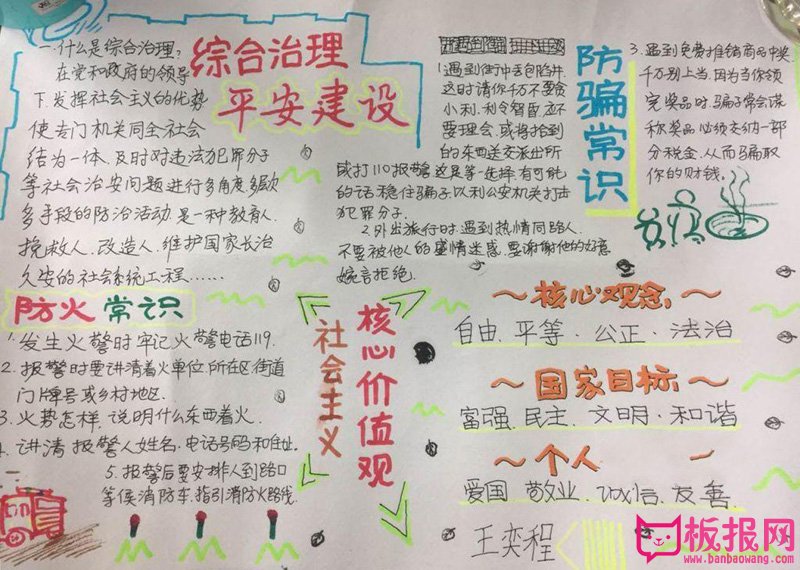 综合治理
平安建设
一.什么是综合治理,
在党和政府的领导
下.发挥社会主义的优势
使专门机关同全社会
结为一体.及时对违法犯罪分子
等社会治安问题进行多角度多
多手段的防治活动.是一种教育人.
挽救人.改造人.维护国家长治
久安的社会系统工程......
防火常识
1.发生火警时牢记火警电话119.
2.报警时要讲清着火单位.所在区街道
门牌号或乡村地区.
3.火势怎样,说明什么东西着火.
4.讲清报警人姓名.电话号码和住址.
5.报警后要安排人到路口
等侯消防车.指引消防火路线.
防骗常识
1.遇到街中丢包陷井.
这时请你千万不要贪
小利.利令智昏.应不
要理会,或将拾到
的东西送交派出所
或打110报警.这是等一选择.有可能
的话.稳住骗子.以利公安机关打击
犯罪分子.
2.外出旅行时.遇到热情同路人.
不要被他人的盛情迷惑.要谢谢他的好意
婉言拒绝.
3.遇到免费推销商品中奖.
千万别上当.因为当你领
完奖品时.骗子常会谎
称奖品必须交纳一部
分税金.从而骗取
你的财钱.
社会主义
核心价值观
~核心观念,
自由.平等·公正·法治
~国家目标
富强.民主.文明·和谐
~个人
爱国.敬业.诚信.友善
王奕程
板报网
www.banbaowang.com